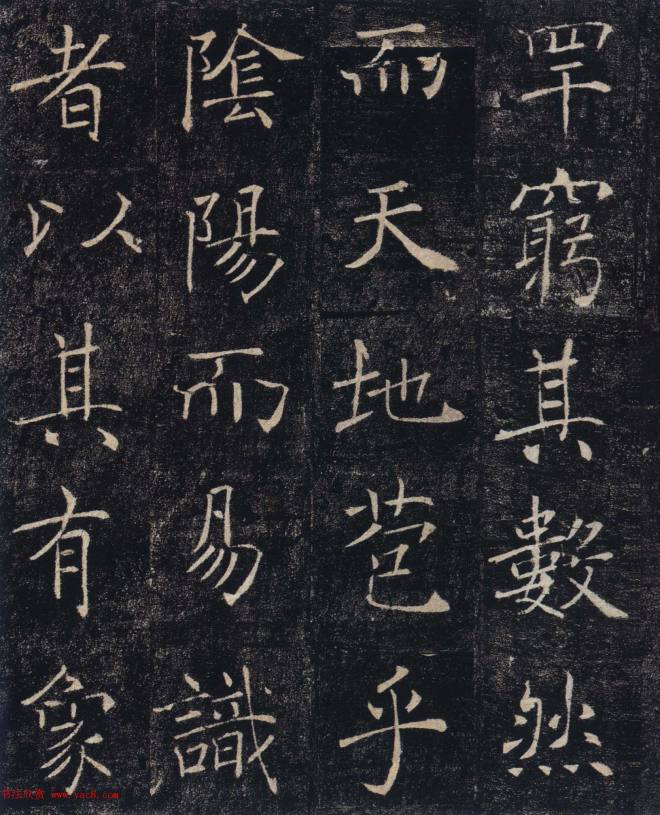 罕窮其數然
而天地苞乎
陰陽而易識
者以其有象
书法欣赏 www.yac8.com